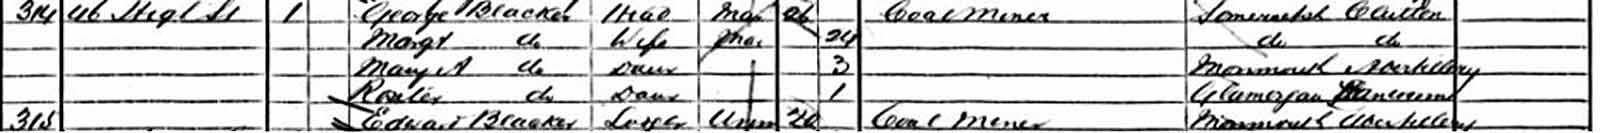 314 46 High St 1 George Blacker Head Mar 26 Coal Miner Somersetsh Clutton
Margt do Wife Mar 24 do do
Mary A do Daur 3 Monmouth Abertillery
Rosler do Daur 1 Glamorgan
315 Edward Blacker Lodger Unm 20 Coal Miner Monmouth Abertillery